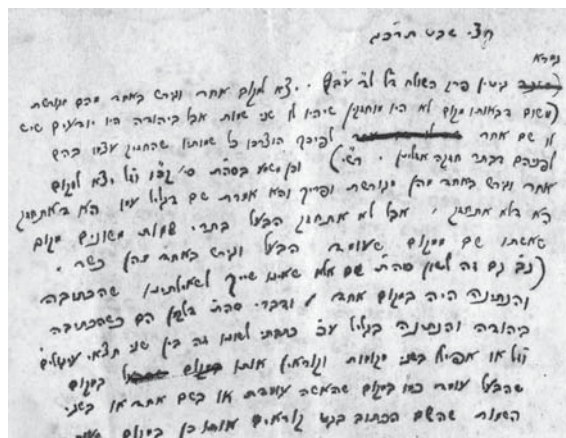 חצי שבט תר״כג
גמרא
גיטין פרק השולח דף ל״ד ע״ב. יצא למקום אחר וגירש באחד מהם מגורשת
(משום דבאותו מקום לא היו מוחזקין שיהיו לו שני שמות אבל ביהודה היו יודעים שיש
לו שם אחר לפיכך הוצרכו כל שמותיו שהחזיק עצמו בהם
לפניהם רש״י) וכן משמע בסה״ת סי׳ וז״ל יצא למקום
אחר וגירש באחד מהן מגורשת ופריך והא אמרת שם בגליל עמו הא דאתחזק
הא דלא אתחזק, אבל לא אתחזק הבעל בתרי שמות משונים מקום
שאשתו שם ממקום שעומד הבעל וגירש באחד מהן כשר.
(גם זה לשון סה״ת שם אלא שאינו שייך לשאלתינו שהכתובה
והנתינה היה במקום אחד, ודברי סה״ת הם כשהכתיבה
ביהודה והנתינה בגליל ע״כ כתבתי לשונו זה בין שני חצאי עיגולים
וז״ל או אפילו בשני מקומות וקוראין אותו במקום
שהבעל עומד כמו במקום שהאשה עומדת או בשם אחד או בשני
השמות שהשם הכתוב בגט קוראים אותו כן במקום